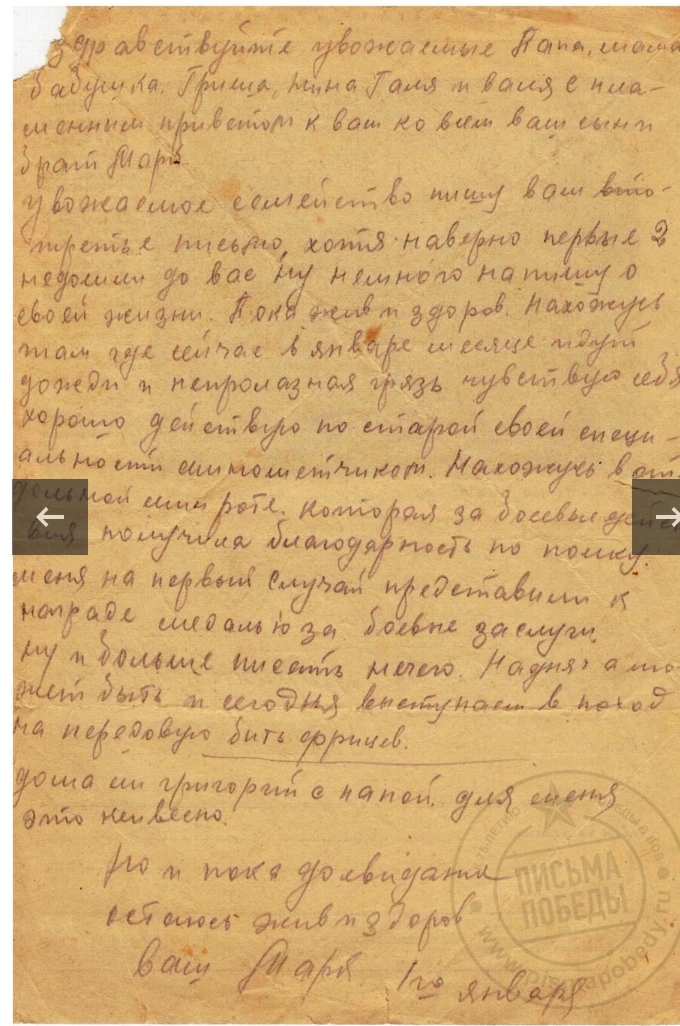 Здравствуйте уважаемые Папа, мама
бабушка, Гриша, Нина Галя и Валя с пла-
менным приветом к вам ко всем ваш сын и
брат
уважаемое семейство пишу вам вто-
третье письмо, хотя наверно первые 2
недошли до вас Ну немного напишу о
своей жизни. Пока жив и здоров. Нахожусь
там где сейчас в январе месяце идут
дожди и непролазная грязь чувствую себя
хорошо действую по старой своей специ-
альности минометчиком. Нахожусь в от-
дельной роте. которая за боевые дейс
вия получила благодарность по полку.
меня на первый случай представили к
награде медалью за боевые заслуги
ну и больше писать нечего. Наднях а мо-
жет быть и сегодня выступаем в поход
на передовую бить фрицев.
дома ли григорий с папой для меня
это неивесно.
Но и пока досвидания
остаюсь жив и здоров
ваш 1го января
ПИСЬМА
ПОБЕДЫ
www.pismapobedy.ru